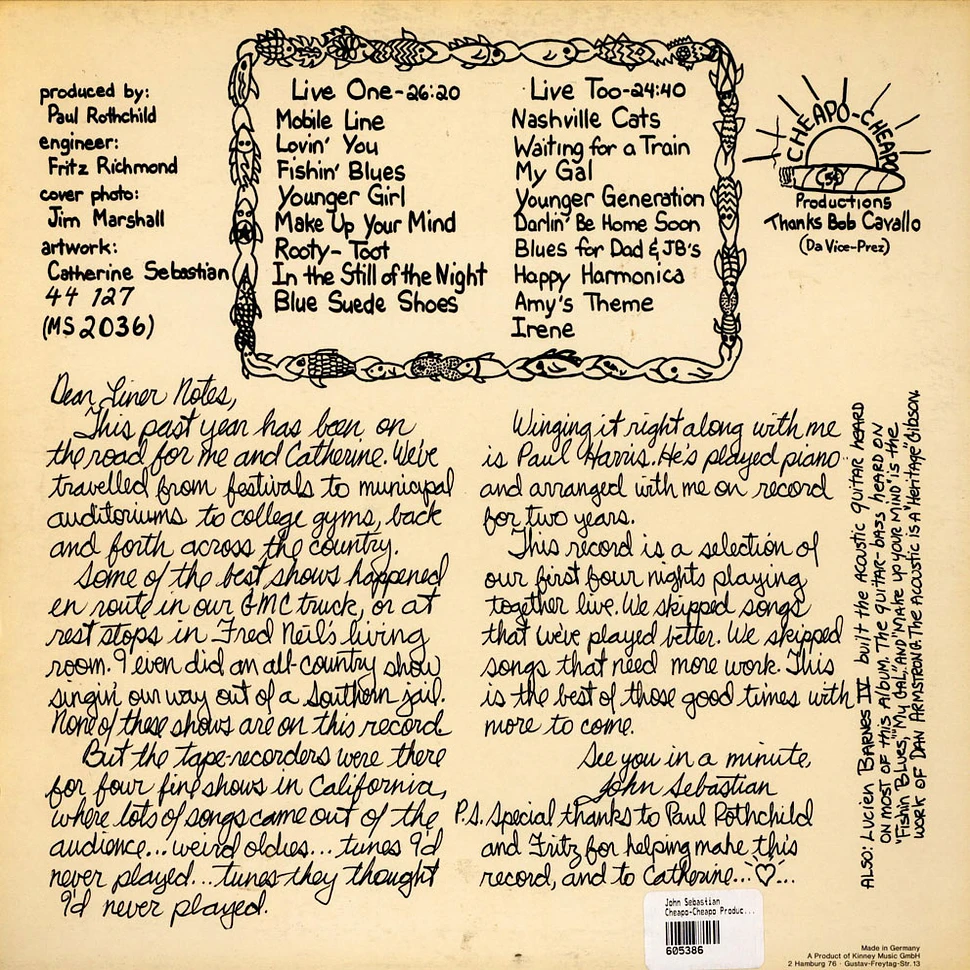 produced by:
Paul Rothchild
engineer:
Fritz Richmond
cover photo:
Jim Marshall
artwork:
Catherine Sebastian
44 127
(MS 2036)
Live One-26:20
Mobile Line
Lovin' You
Fishin' Blues
Younger Girl
Make Up Your Mind
Rooty-Toot
In the Still of the Night
Blue Suede Shoes
Live Too-24:40
Nashville Cats
Waiting for a Train
My Gal
Younger Generation
Darlin' Be Home Soon
Blues for Dad & JB's
Happy Harmonica
Amy's Theme
Irene
CHEAPO-CHEAPO
5¢
Productions
Thanks Bob Cavallo
(Da Vice-Prez)
Dear Liner Notes,
This past year has been on
the road for me and Catherine. We've
travelled from festivals to municipal
auditoriums to college gyms, back
and forth across the country.
Some of the best shows happened
en route in our GMC truck, or at
rest stops in Fred Neil's living
room. I even did an all-country show
singin' our way out of a Southern jail.
None of these shows are on this record.
But the tape-recorders were there
for four fine shows in California,
where lots of songs came out of the
audience...weird oldies...tunes I'd
never played...tunes they thought
I'd never played.
Winging it right along with me
is Paul Harris. He's played piano
and arranged with me on record
for two years.
This record is a selection of
our first four nights playing
together live. We skipped songs
that we've played better. We skipped
songs that need more work. This
is the best of those good times with
more to come.
See you in a minute,
John Sebastian
P.S. Special thanks to Paul Rothchild
and Fritz for helping make this
record, and to Catherine...♡...
ALSO: LUCIEN BARNES IV built the ACOUSTIC GUITAR HEARD
ON MOST OF THIS ALBUM. THE GUITAR-BASS HEARD ON
"FISHIN' BLUES", "MY GAL", AND "MAKE UP YOUR MIND" IS the
WORK OF DAN ARMSTRONG. THE ACOUSTIC IS A "HERITAGE" GIBSON.
John Sebastian
Cheapo-Cheapo Produc...
605386
Made in Germany
A Product of Kinney Music GmbH
2 Hamburg 76 · Gustav-Freytag-Str. 13